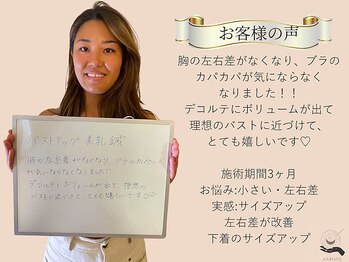 お客様の声
胸の左右差がなくなり、ブラの
カパカパが気にならなく
なりました！！
デコルテにボリュームが出て
理想のバストに近づけて、
とても嬉しいです♡
施術期間3ヶ月
お悩み:小さい・左右差
実感:サイズアップ
左右差が改善
下着のサイズアップ
バストアップ 美乳
胸の左右差がなくなり、ブラのカパカパ
が気にならなくなりました!!
デコルテにボリュームが出て、理想の
バストに近づけて、とても嬉しいです♡